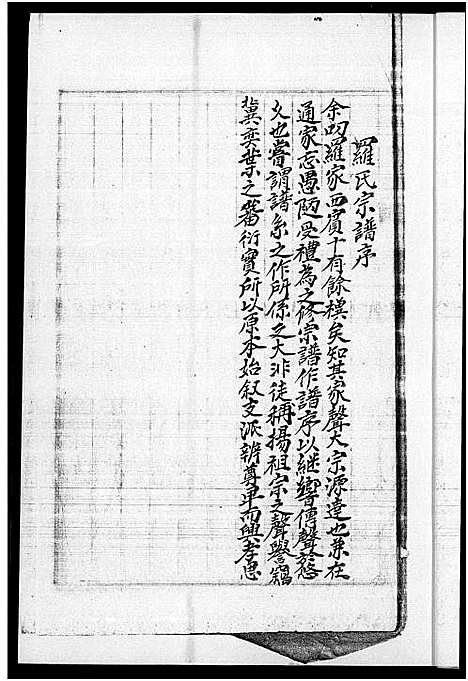 羅氏宗譜序
余叨羅家西賓十有餘槙矣知其家聲大宗源遠也兼在
通家忘愚陋受禮為之修宗譜作譜序以継響傳聲於悠
久也嘗謂譜系之作所係之大非徒稱揚祖宗之聲譽寵
冀奕葉之蕃衍實所以原本始叙支派辨尊卑而興孝思